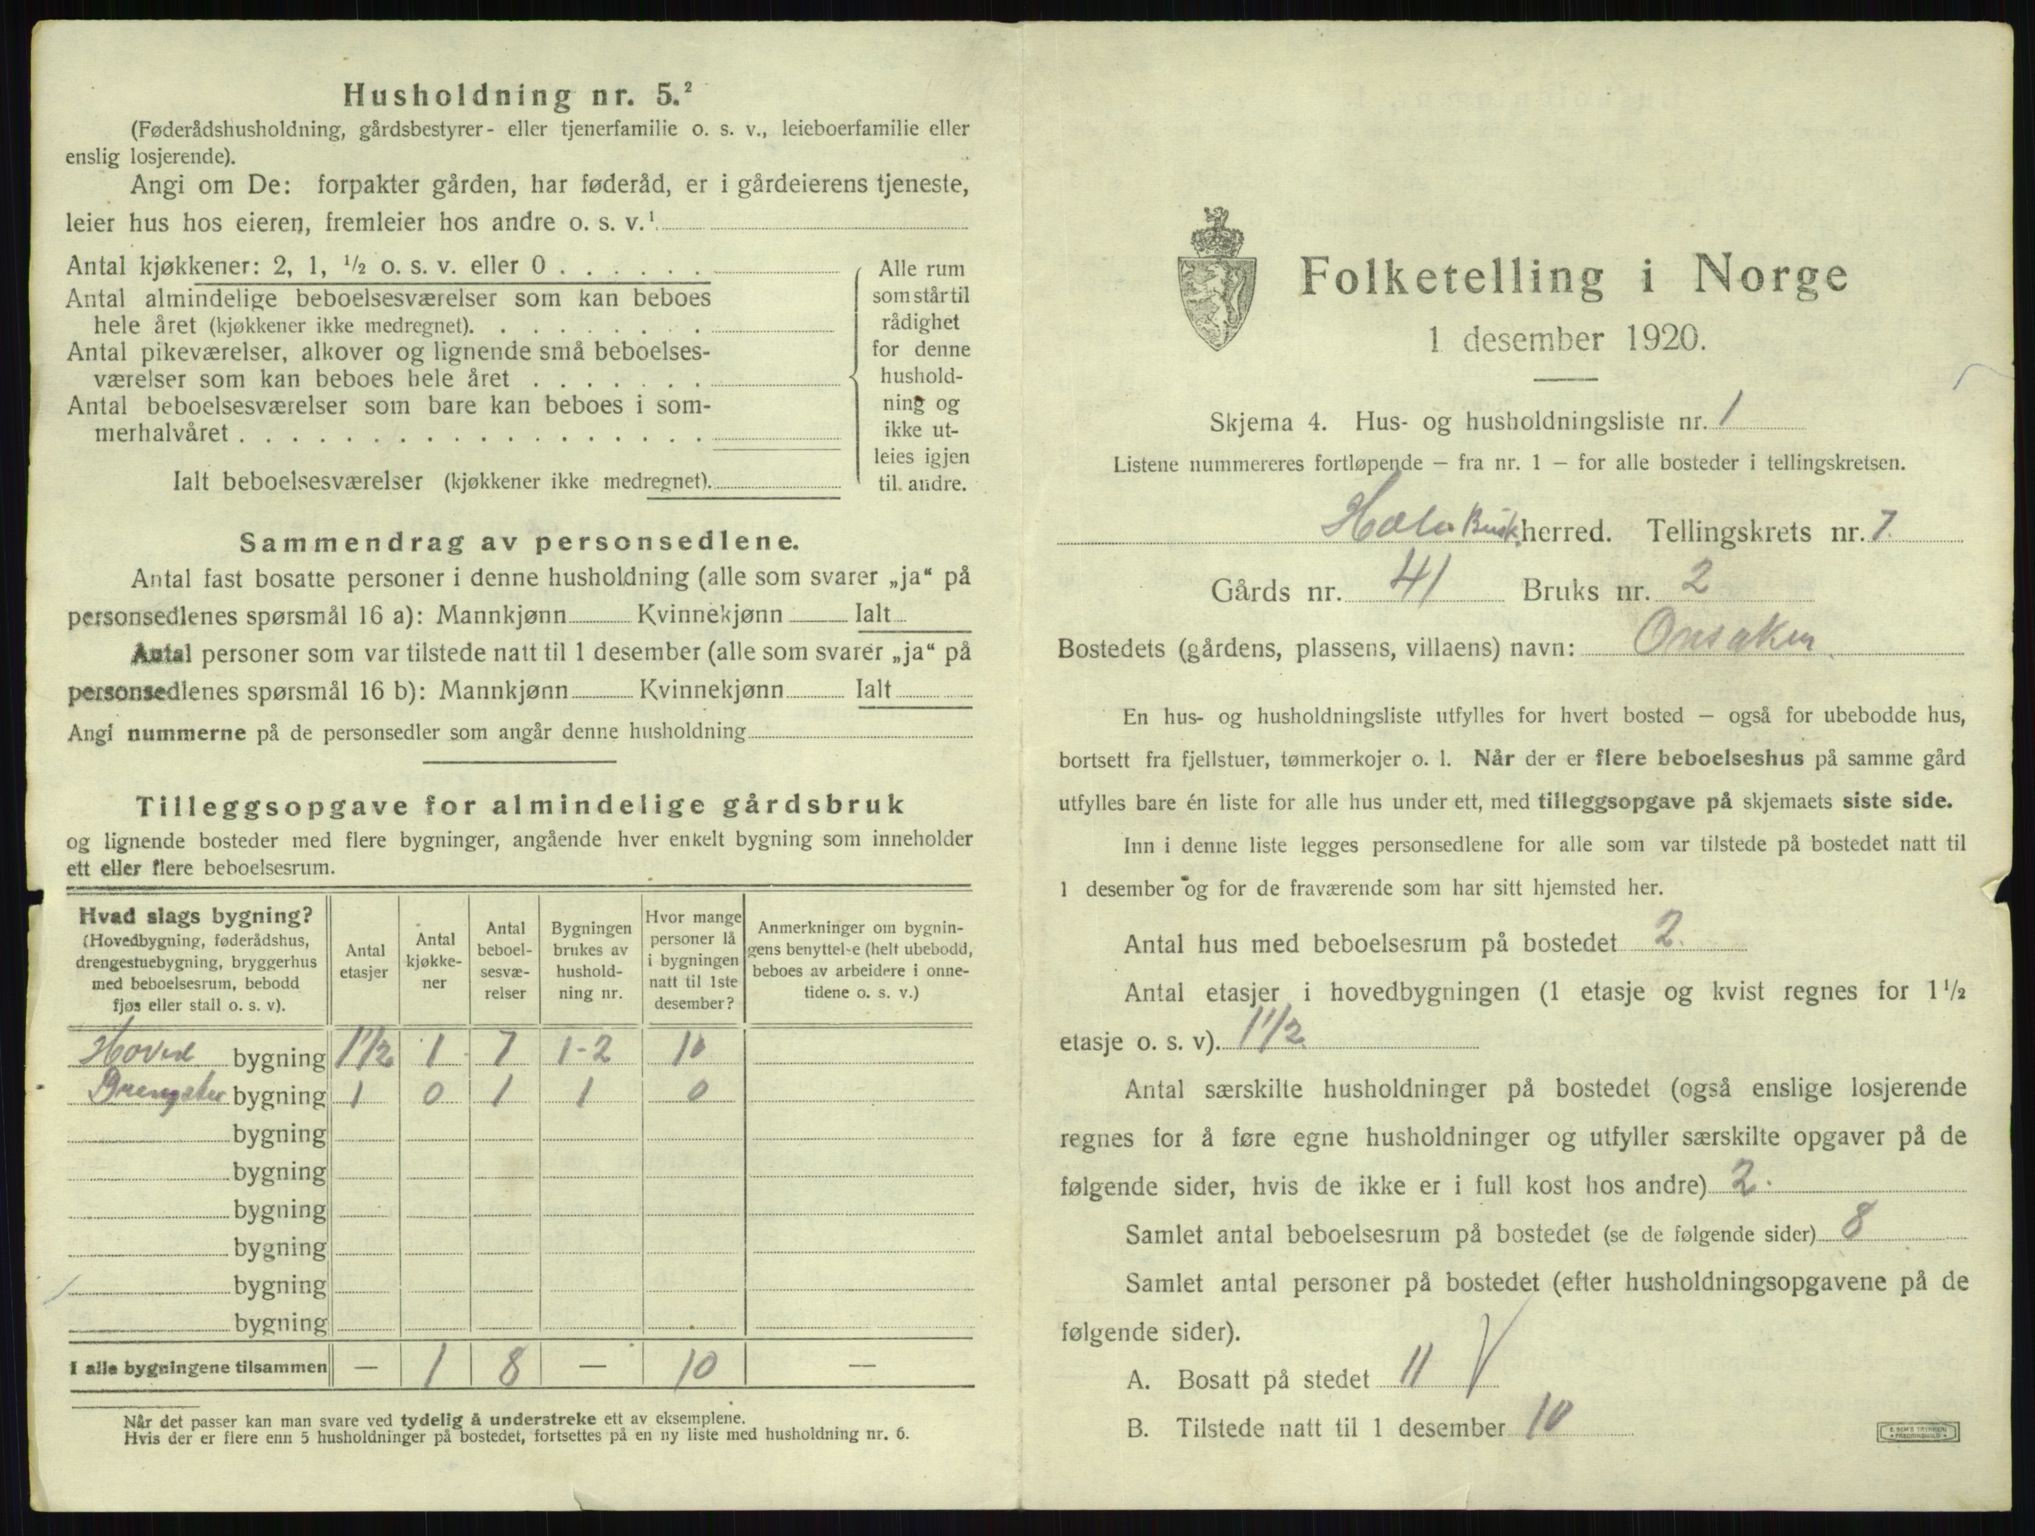 Husholdning nr. 5.²
(Føderådshusholdning, gårdsbestyrer- eller tjenerfamilie o. s. v., leieboerfamilie eller
enslig losjerende).
Angi om De: forpakter gården, har føderåd, er i gårdeierens tjeneste,
leier hus hos eieren, fremleier hos andre o. s. v.¹
Antal kjøkkener: 2, 1, ½ o. s. v. eller 0 . . . . . .
Antal almindelige beboelsesværelser som kan beboes
hele året (kjøkkener ikke medregnet). . . . . . . .
Antal pikeværelser, alkover og lignende små beboelses-
værelser som kan beboes hele året . . . . . . .
Antal beboelsesværelser som bare kan beboes i som-
merhalvåret . . . . . . . . . . . . . . . . . .
Ialt beboelsesværelser (kjøkkener ikke medregnet).
Alle rum
som står til
rådighet
for denne
hushold-
ning og
ikke ut-
leies igjen
til andre.
Sammendrag av personsedlene.
Antal fast bosatte personer i denne husholdning (alle som svarer „ja“ på
personsedlenes spørsmål 16 a): Mannkjønn Kvinnekjønn Ialt
Antal personer som var tilstede natt til 1 desember (alle som svarer „ja“ på
personsedlenes spørsmål 16 b): Mannkjønn Kvinnekjønn Ialt
Angi nummerne på de personsedler som angår denne husholdning
Tilleggsopgave for almindelige gårdsbruk
og lignende bosteder med flere bygninger, angående hver enkelt bygning som inneholder
ett eller flere beboelsesrum.
Hvad slags bygning?
(Hovedbygning, føderådshus,
drengestuebygning, bryggerhus
med beboelsesrum, bebodd
fjøs eller stall o. s. v).
Antal
etasjer
Antal
kjøkke-
ner
Antal
beboel-
sesvæ-
relser
Bygningen
brukes av
hushold-
ning nr.
Hvor mange
personer lå
i bygningen
natt til 1ste
desember?
Anmerkninger om bygnin-
gens benyttelse (helt ubebodd,
beboes av arbeidere i onne-
tidene o. s. v.)
Hoved bygning 1½ 1 7 1-2 10
bygning 1 0 1 1 0
bygning
bygning
bygning
bygning
bygning
bygning
I alle bygningene tilsammen — 1 8 — 10 —
Når det passer kan man svare ved tydelig å understreke ett av eksemplene.
Hvis der er flere enn 5 husholdninger på bostedet, fortsettes på en ny liste med husholdning nr. 6.
Folketelling i Norge
1 desember 1920.
Skjema 4. Hus- og husholdningsliste nr. 1
Listene nummereres fortløpende — fra nr. 1 — for alle bosteder i tellingskretsen.
Hole Busk. herred. Tellingskrets nr. 7.
Gårds nr. 41 Bruks nr. 2
Bostedets (gårdens, plassens, villaens) navn: Onsaker
En hus- og husholdningsliste utfylles for hvert bosted — også for ubebodde hus,
bortsett fra fjellstuer, tømmerkojer o. l. Når der er flere beboelseshus på samme gård
utfylles bare én liste for alle hus under ett, med tilleggsopgave på skjemaets siste side.
Inn i denne liste legges personsedlene for alle som var tilstede på bostedet natt til
1 desember og for de fraværende som har sitt hjemsted her.
Antal hus med beboelsesrum på bostedet 2.
Antal etasjer i hovedbygningen (1 etasje og kvist regnes for 1½
etasje o. s. v). 1½.
Antal særskilte husholdninger på bostedet (også enslige losjerende
regnes for å føre egne husholdninger og utfyller særskilte opgaver på de
følgende sider, hvis de ikke er i full kost hos andre) 2.
Samlet antal beboelsesrum på bostedet (se de følgende sider) 8
Samlet antal personer på bostedet (efter husholdningsopgavene på de
følgende sider).
A. Bosatt på stedet 11
B. Tilstede natt til 1 desember 10